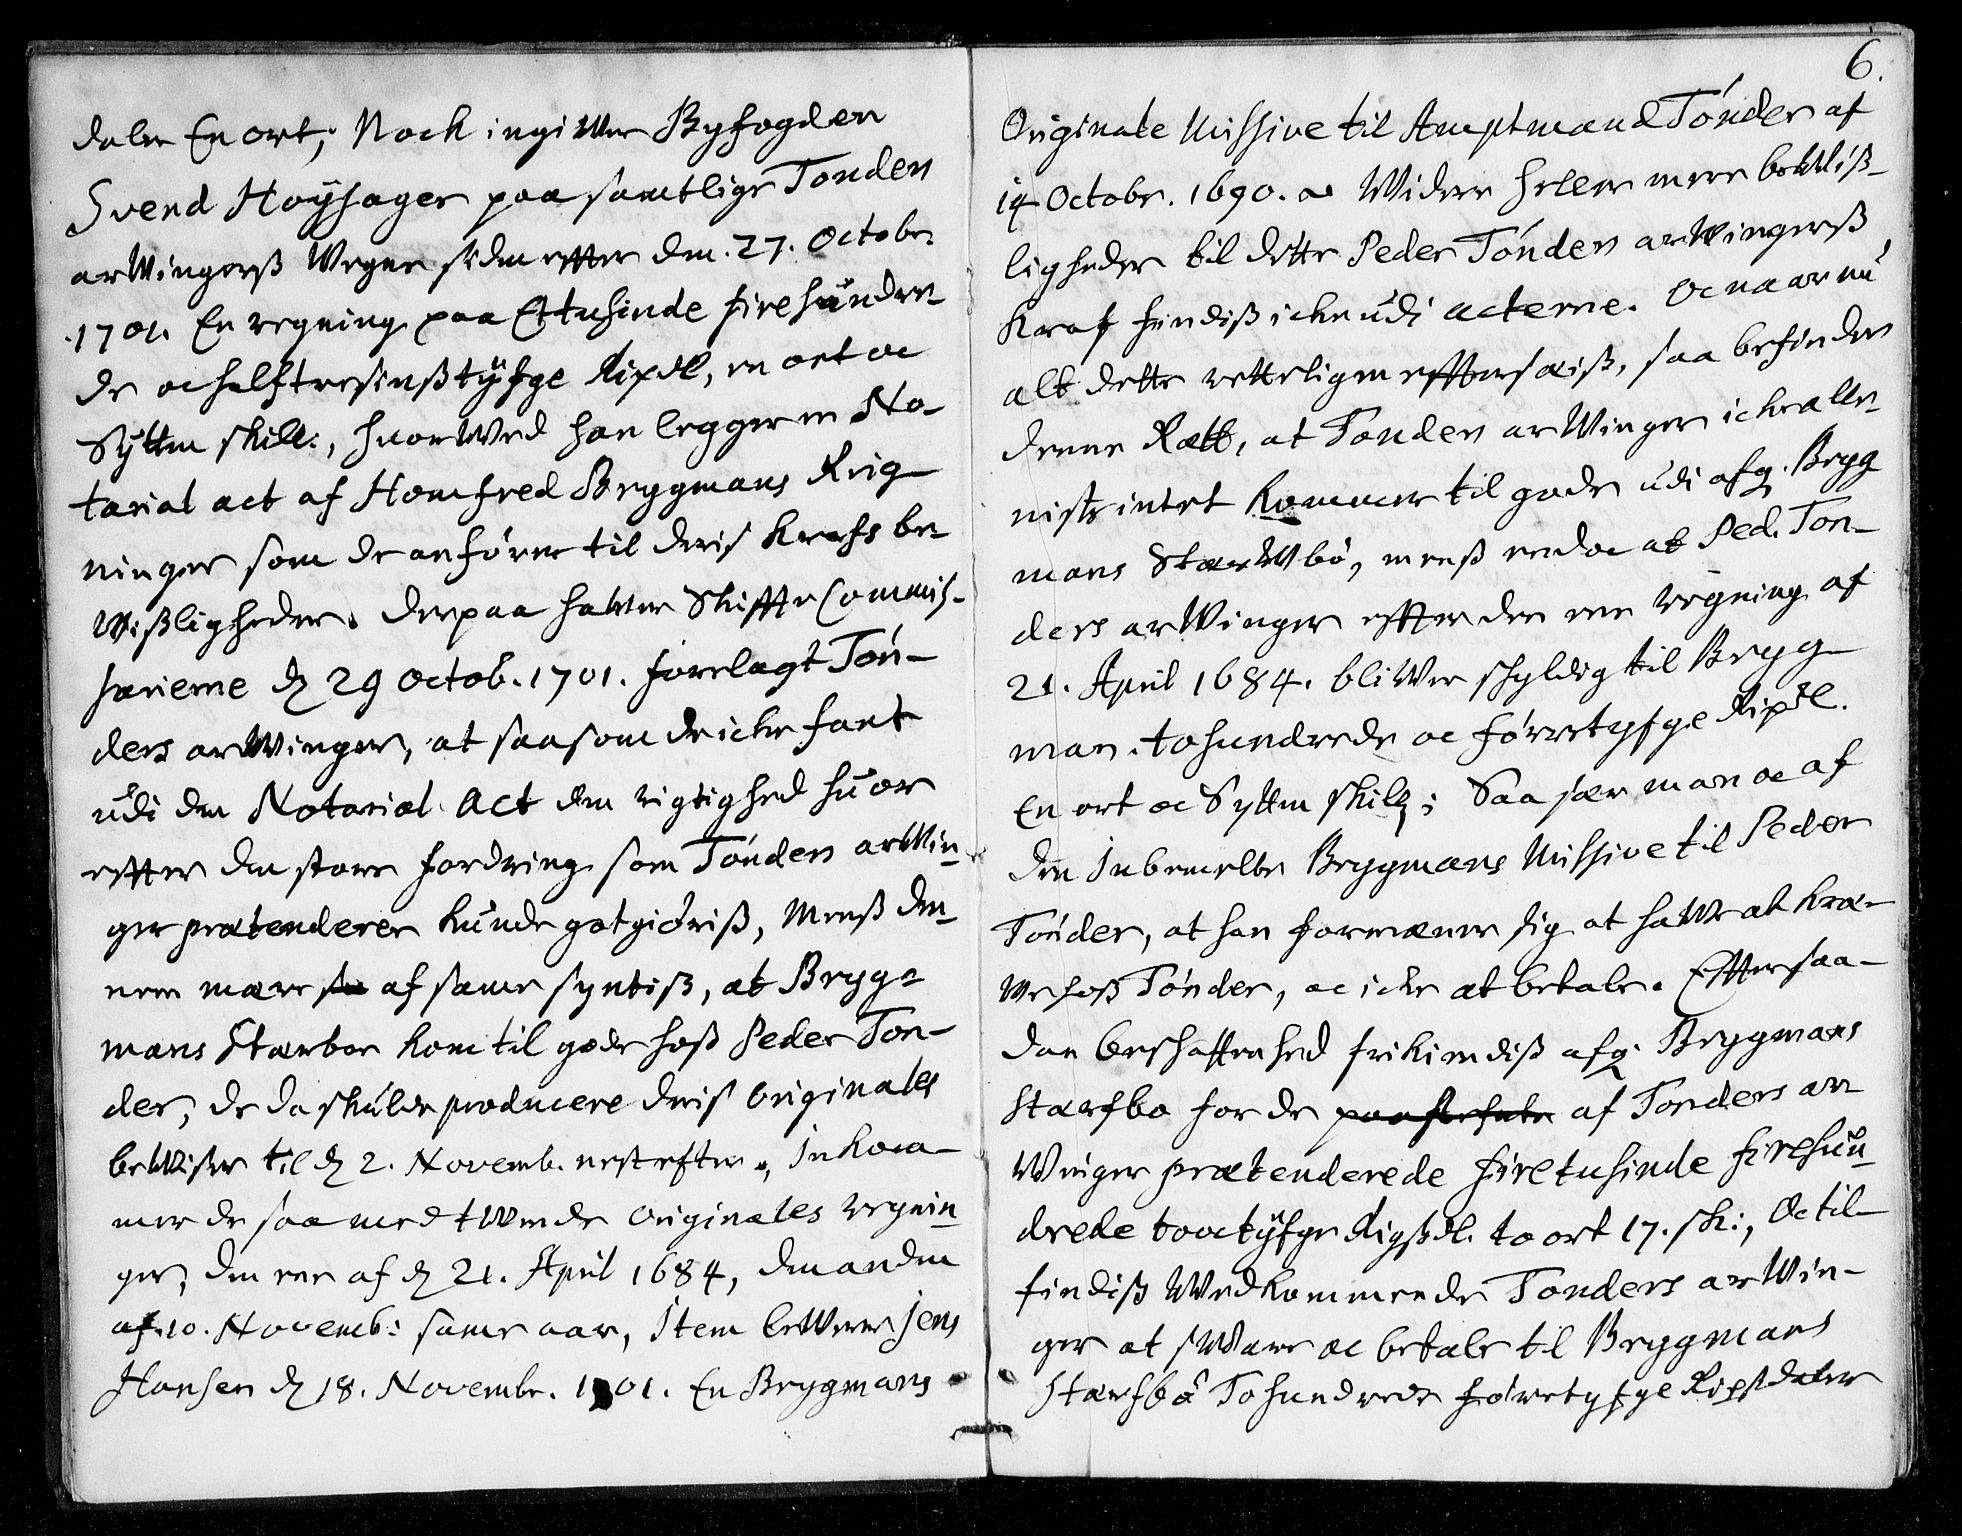 daler En ort; Noch ingiWer Byfogden
Svend Höyhager paa samtlige Tonders
arWingerß Wegne siden effter den. 27. Octobr.
1701. En regning paa Ettusinde firehundre
de ochalftresinßtÿfge Rixdl, en ort oc
Sytten skill:, hvorWed han legger en No-
tarial act af Homfred Brygmans Reig
ninger som de anförer til deris krafs be-
Wißligheder. Derpaa haWer Skiffte Commis-
sarierne d 29 Octob. 1701. forelagt Tön-
ders arWinger, at saasom de icke fant
udi den Notarial Act den rigtighed huor
effter den store fordring som Tönders arWin-
ger prætenderer kunde gotgiöriß, menß den-
nem mere af same syntiß, at Bryg-
mans Stærboe kom til gode hoß Peder Ton-
der, de da skulde producere deris Originales
beWiser til d 2. Novemb. nest efter, Inkom-
mer de saa med tWende Originales regnin-
ger, den ene af d 21. April 1684, den anden
af 10. Novemb: same aar, Item leWerer Jens
Hansen d 18. Novembr. 1701. En Brygmans
6.
Originale Missive til Amptmand Tönder af
14 Octobr. 1690. Widere heller mere beWiß-
ligheder til dette Peder Tönders arWingerß
kraf findiß icke udi acterne. Oc naar nu
alt dette retteligen efftersæiß, saa befinder
denne Rætt, at Tonders arWinger icke alle-
niste intet kommer til gode udi afg. Bryg
mans StærWbö, menß endoc at Ped. Ton-
ders arWinger effter den ene regning af
21. April 1684. bliWer skyldig til Bryg-
man. tohundrede oc förretyfge Rixdl.
En ort oc Sytten skill; Saa sær man oc af
den Inbemelte Brygmans Missive til Peder
Tönder, at han formæner sig at haWe at kræ-
We hoß Tönder, oc icke at betale. Efftersaa-
dan beschaffenhed frikiendiß afg. Brygmans
Stærfbo for de paastefnte af Tonders ar-
Winger prætenderede firetusinde firehun-
drede tooctÿfge Rigßdl. to ort 17. sk:, Oc til-
findiß Wedkommende Tonders arWin-
ger at sWare oc betale til Brygmans
Stærfbö Tohundrede förretyfge Rixdaler